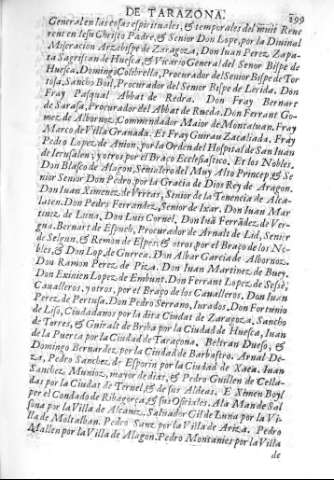 DE TARAZONA.
299
General en las cosas espirituales, & temporales del muit Reue
rent en Iesu Christo Padre, & Senior Don Lope, por la Diuinal
Miseracion Arzebispe de Zaragoza, Don Iuan Perez Zapa-
ta Sagristan de Huesca, & Vicario General del Senor Bispe de
Huesca, Domingo Colibrella, Procurador del Senior Bispe de Tor
tosa, Sancho Boil, Procurador del Senior Bispe de Lerida. Don
Fray Pasqual Abbat de Rueda. Don Fray Bernart
de Sarasa, Procurador del Abbat de Rueda. Don Ferrant Go-
mez de Albornoz, Commendador Maior de Montaluan. Fray
Marco de Villa Granada. Et Fray Guirau Zacaliada. Fray
Pedro Lopez de Anion, por la Orden del Hospital de San Iuan
de Ierusalem; y otros por el Braço Ecclesiastico. Et los Nobles,
Don Blasco de Alagon, Seniolero del Muy Alto Princep, & Se
nior Senior Don Pedro por la Gracia de Dios Rey de Aragon.
Don Iuan Ximenez de Vrrea, Senior de la Tenencia de Alca-
laten. Don Pedro Ferrandez, Senior de Ixar. Don Iuan Mar
tinez de Luna, Don Luis Cornel, Don Iuã Ferrãdez de Ver-
gua. Bernart de Espuch, Procurador de Arnalt de Lid, Senior
de Selgua, & Remon de Espes; & otros por el Braço de los No-
bles, & Don Lop, de Gurrea. Don Albar Garcia de Albornoz.
Don Ramon Perez de Piza. Don Iuan Martinez de Buey.
Don Eximen Lopez de Embunt. Don Ferrant Lopez de Sesse,
Caualleros, y otros, por el Braço de los Caualleros, Don Iuan
Perez de Pertusa, Don Pedro Serrano, Iurados, Don Fortunio
de Liso, Ciudadanos por la dita Ciudat de Zaragoza, Sancho
de Torres, & Guiralt de Briba por la Ciudad de Huesca, Iuan
de la Puerta por la Ciudad de Taraçona, Beltran Dueso, &
Domingo Bernardez, por la Ciudad de Barbastro. Arnal De-
za, Pedro Sanchez de Esporin por la Ciudad de Xaca. Iuan
Sanchez Munioz, mayor de dias, & Pedro Guillen de Cella-
das por la Ciudat de Teruel, & de sus Aldeas. E Ximen Boyl
por el Condado de Ribagorça, & sus Officiales. Ala Mande Sal
sona por la Villa de Alcaniz. Saluador Gil de Luna por la Vi-
lla de Moltalban. Pedro Sanz por la Villa de Ariza. Pedro
Mallen por la Villa de Alagon. Pedro Montanies por la Villa
de